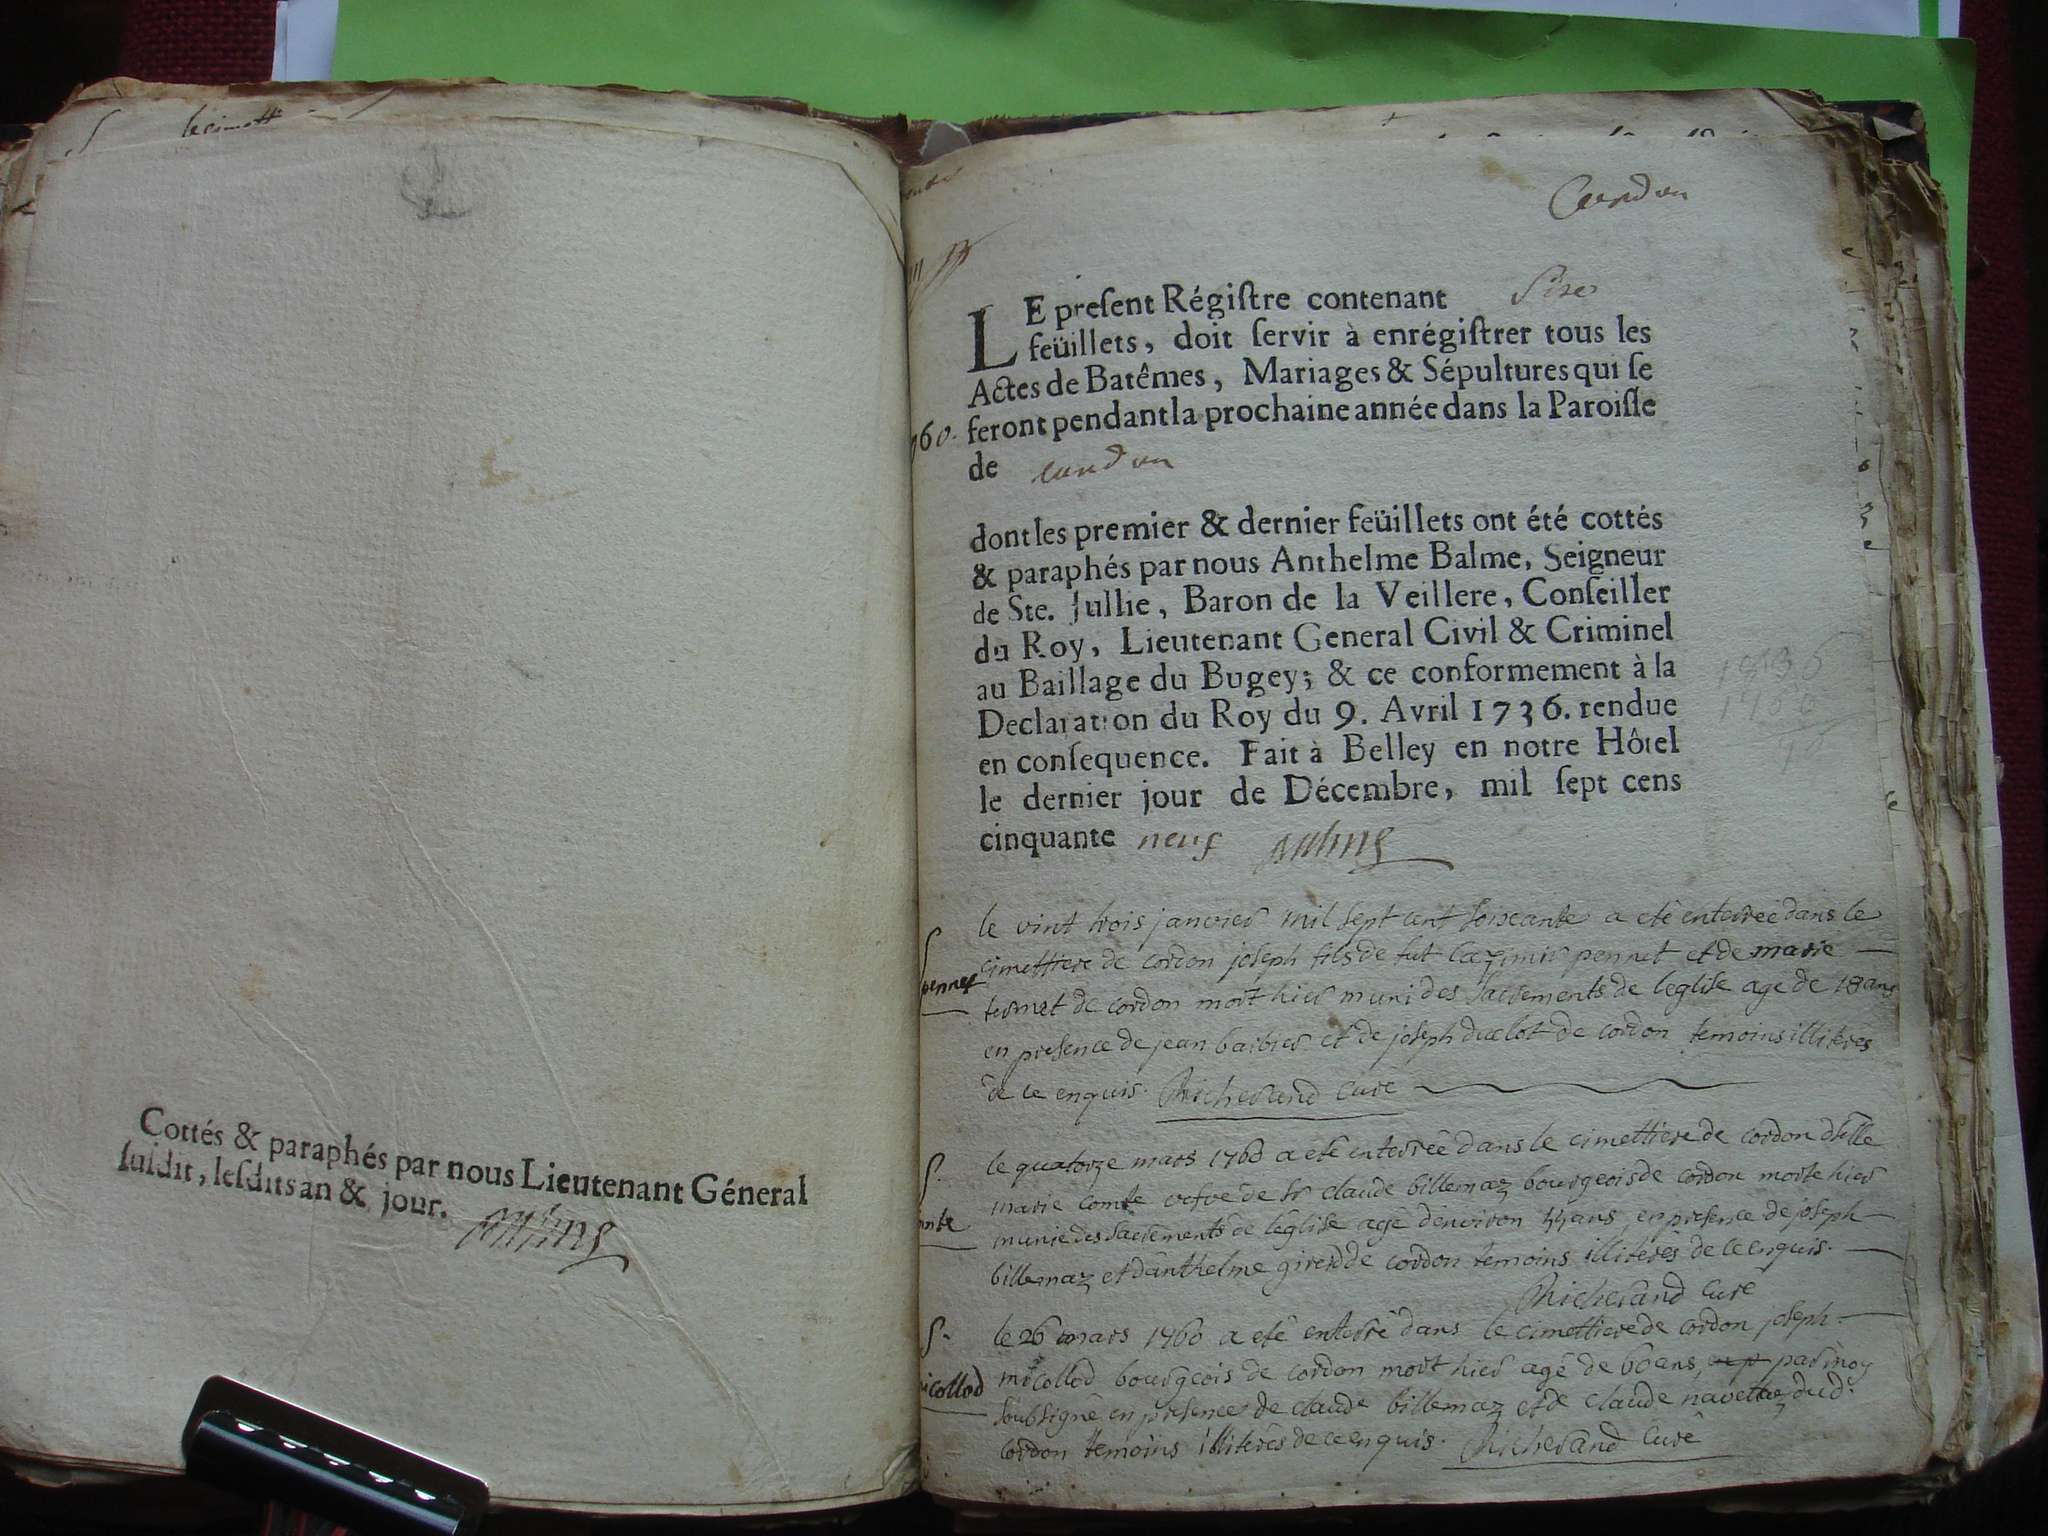 le cimetti
Cottés & paraphés par nous Lieutenant Géneral
susdit, lesdits an & jour.
Cordon
LE present Régistre contenant Six
feüillets, doit servir à enrégistrer tous les
Actes de Batêmes, Mariages & Sépultures qui se
feront pendant la prochaine année dans la Paroisse
de Cordon
dont les premier & dernier feüillets ont été cottés
& paraphés par nous Anthelme Balme, Seigneur
de Ste. Jullie, Baron de la Veillere, Conseiller
du Roy, Lieutenant General Civil & Criminel
au Baillage du Bugey; & ce conformement à la
Declaration du Roy du 9. Avril 1736. rendue
en consequence. Fait à Belley en notre Hôtel
le dernier jour de Décembre, mil sept cens
cinquante neuf Balme
le vint trois janvier mil sept cent soixante a eté enterréé dans le
cimettiere de cordon joseph fils de fut Cazimir pennet et de marie
pennet
termet de cordon mort hier muni des Sacrements de leglise age de 18 ans
en presence de jean barbier et de joseph duclot de cordon temoins illiterés
de ce enquis. Richerand Curé
S.
le quatorze mars 1760 a eté enterréé dans le cimettiere de cordon dlle
marie comte vefve de Sr claude billemaz bourgeois de cordon morte hier
munie des Sacrements de léglise agé denviron ans en presence de joseph
billemaz et danthelme girerd de cordon temoins illiterés de ce enquis.
Richerand Curé
S.
le 26 mars 1760 a eté enterré dans le cimettiere de cordon joseph
micollod bourgeois de cordon mort hier agé de 60 ans par moy
icollod
soubsigné en presence de claude billemaz et de claude navettaz dud.
cordon temoins illiterés de ce enquis. Richerand Curé